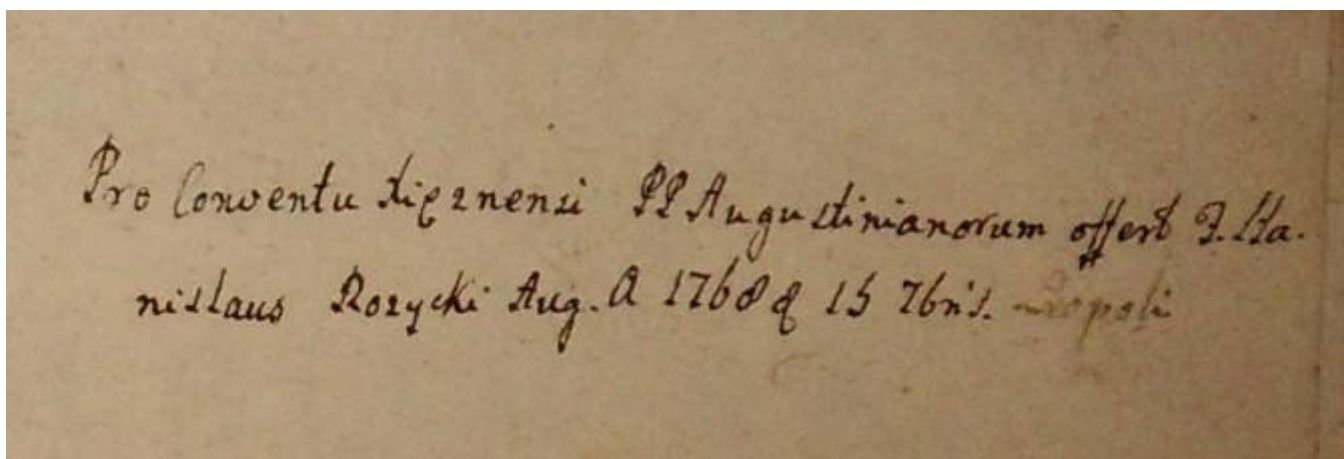 Pro Conventu Xięznensi PP Augustinianorum offert F. Sta.
nislaus Rozycki Aug. A 1768 15 7bris.